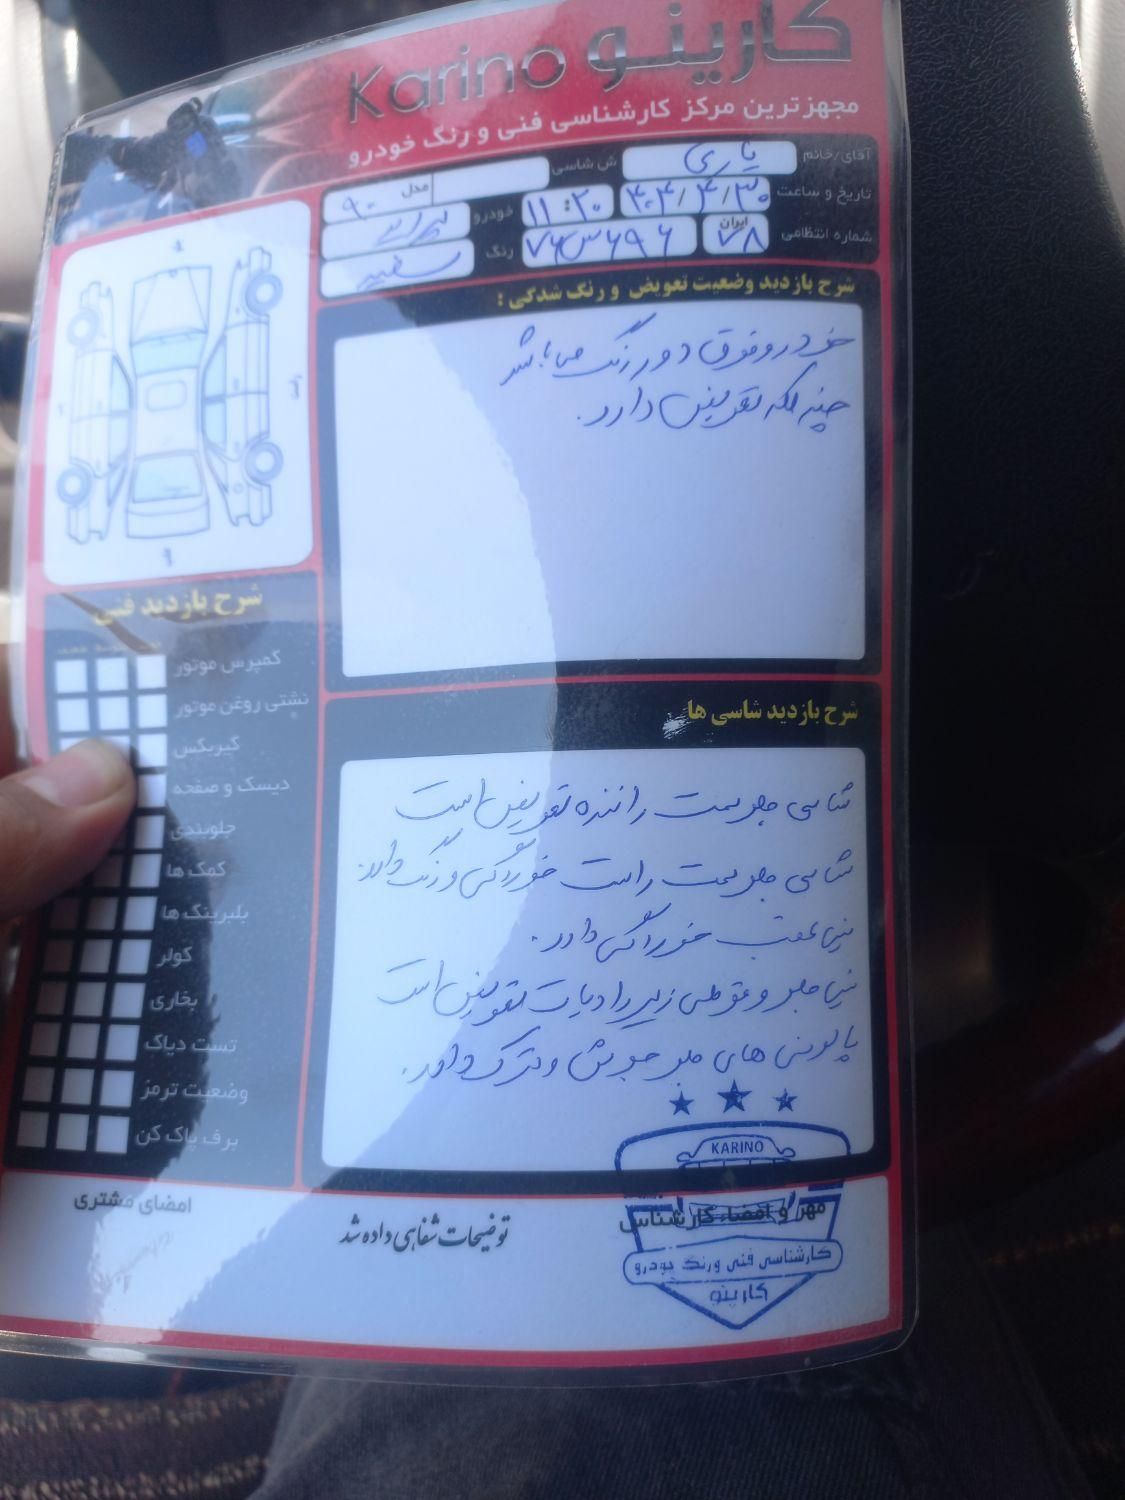 کارینو Karino
مجهزترین مرکز کارشناسی فنی و رنگ خودرو
آقای/خانم یاری ش شاسی
تاریخ و ساعت ۴۰۴/۴/۳۰ ۱۱:۲۰ خودرو پراید مدل ۹۰
شماره انتظامی ایران ۷۸ ۷۶س۶۹۶ رنگ سفید
شرح بازدید وضعیت تعویض و رنگ شدگی :
خودرو فوق دور رنگ می باشد
چند لکه تعویض دارد.
شرح بازدید فنی
کمپرس موتور
نشتی روغن موتور
گیربکس
دیسک و صفحه
جلوبندی
کمک ها
بلبرینگ ها
کولر
بخاری
تست دیاگ
وضعیت ترمز
برف پاک کن
شرح بازدید شاسی ها
شاسی جلو سمت راننده تعویض است
شاسی جلو سمت راست خوردگی و رنگ دارد.
سینی عقب خوردگی دارد.
سینی جلو و قوطی زیر رادیات تعویض است
پالونی های جلو جوش و ترک دارد.
KARINO
مهر و امضاء کارشناس
کارشناسی فنی و رنگ خودرو
کارینو
توضیحات شفاهی داده شد
امضای مشتری